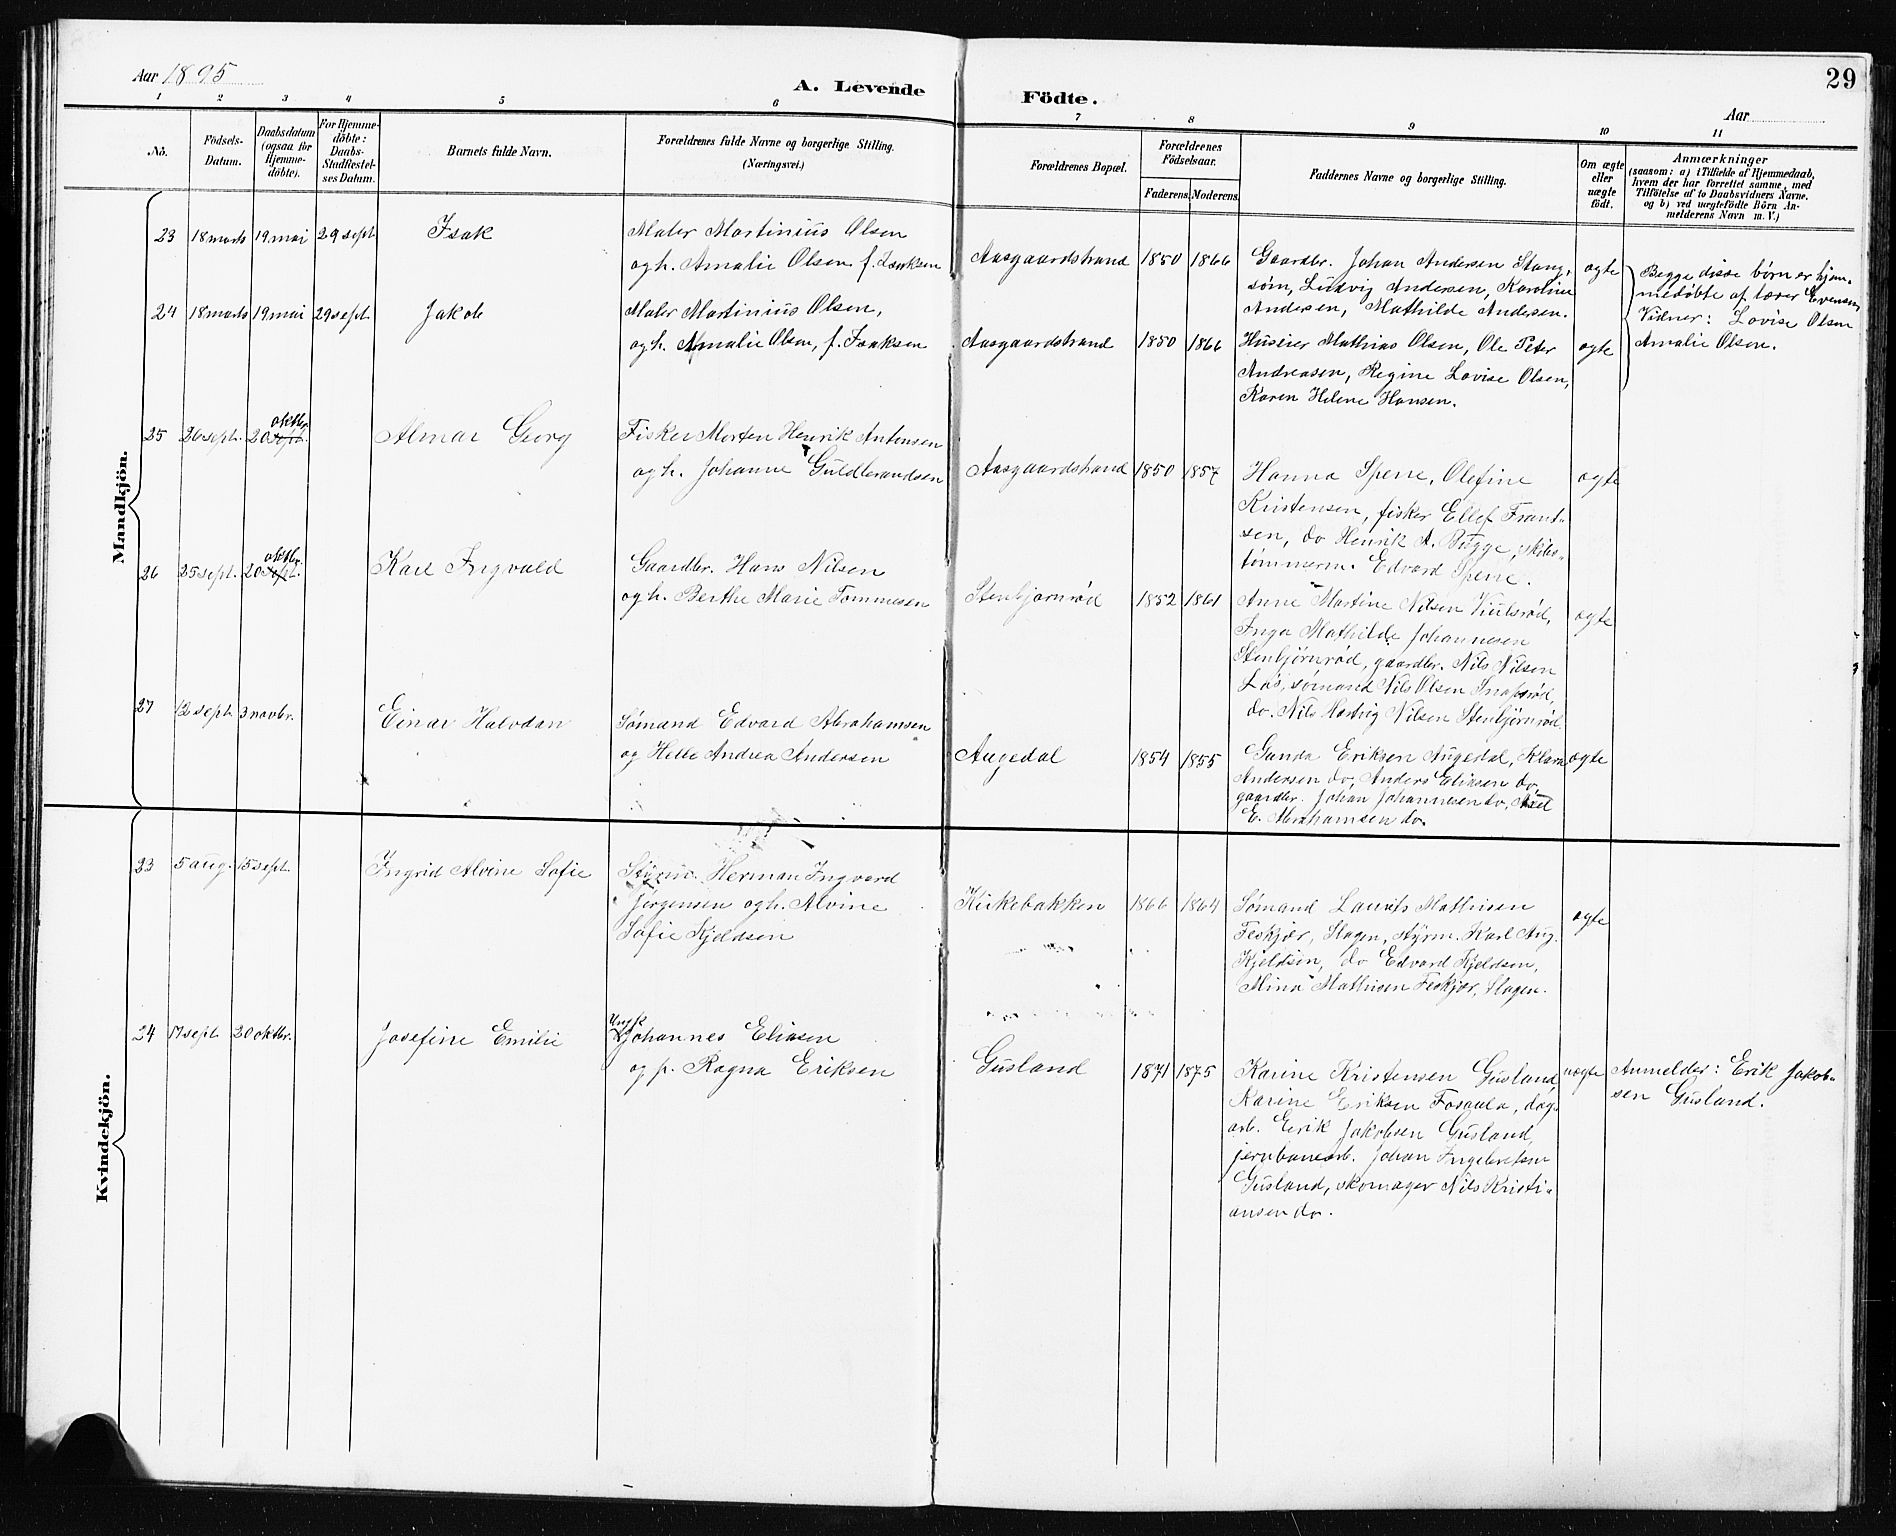 Aar 1895
A. Levende
Födte.
29
Aar
1 2 3 4 5 6 7 8 9 10 11
No.
Födsels-Datum.
Daabsdatum (ogsaa för Hjemmedöbte).
For Hjemmedöbte: Daabs-Stadfestelses Datum.
Barnets fulde Navn.
Forældrenes fulde Navne og borgerlige Stilling.
(Næringsvei.)
Forældrenes Bopæl.
Forældrenes Födselsaar.
Faderens. Moderens.
Faddernes Navne og borgerlige Stilling.
Om ægte eller uægte födt.
Anmærkninger
(saasom: a) i Tilfælde af Hjemmedaab,
hvem der har forrettet samme, med
Tilföielse af to Daabsvidners Navne.
og b) ved uægtefödte Börn Anmelderens Navn m. V.)
Mandkjön.
23 18 marts 19 mai 29 sept. Isak
Maler Martinius Olsen
og h. Amalie Olsen f. Isaksen
Aasgaardstrand 1850 1866
Gaardbr. Johan Andersen Stang,
søm, Ludvig Andersen, Karoline
Andersen, Mathilde Andersen.
ægte
Begge disse børn er hjem-
medøbte af lærer Evensen,
Vidner: Lovise Olsen
Amalie Olsen.
24 18 marts 19 mai 29 sept. Jakob
Maler Martinius Olsen,
og h. Amalie Olsen, f. Isaksen
Aasgaardstrand 1850 1866
Huseier Mathias Olsen, Ole Peter
Andreasen, Regine Lovise Olsen,
Karen Helene Hansen.
ægte
25 26 sept. 20 oktbr. Almar Georg
Fisker Morten Henrik Antonsen
og h. Johanne Guldbrandsen
Aasgaardstrand 1850 1857
Hanna Sperre, Olefine
Kristensen, fisker Ellef Frant-
sen, do Henrik A. Bugge, skibs-
tømmerm. Edvard Sperre.
ægte
26 25 sept. 20 oktbr. Karl Ingvald
Gaardbr. Hans Nilsen
og h. Berthe Marie Tommesen
Stenbjørnrød 1852 1861
Anne Martine Nilsen
Inga Mathilde Johannesen
Stenbjørnrød, gaardbr. Nils Nilsen
Løs, sømand Nils Olsen
do. Nils Hartvig Nilsen Stenbjørnrød.
ægte
27 12 sept. 3 novbr. Einar Halvdan
Sømand Edvard Abrahamsen
og Helle Andrea Andersen
Augedal 1854 1855
Gunda Eriksen Augedal, Klara
Andersen do, Anders Eliasen do,
gaardbr. Johan Johannesen do, Axel
E. Abrahamsen do.
ægte
Kvindekjön.
23 5 aug. 15 sept. Ingrid Alvine Sofie
Styrm. Herman Ingvard
Jørgensen og h. Alvine
Sofie Kjeldsen
Kirkebakken 1866 1864
Sømand Laurits Mathisen
Feskjær, Slagen, styrm. Karl Aug.
Kjeldsen, do Edvard Kjeldsen,
Mina Mathisen Feskjær, Slagen.
ægte
24 17 sept. 20 oktbr. Josefine Emilie
Ungk. Johannes Eliasen
og p. Ragna Eriksen
Gusland 1871 1875
Karine Kristensen Gusland
Karine Eriksen Fosaula, dag-
arb. Erik Jakobsen Gusland,
jernbanearb. Johan Ingebretsen
Gusland, skomager Nils Kristi-
ansen do.
uægte
Anmelder: Erik Jakob-
sen Gusland.